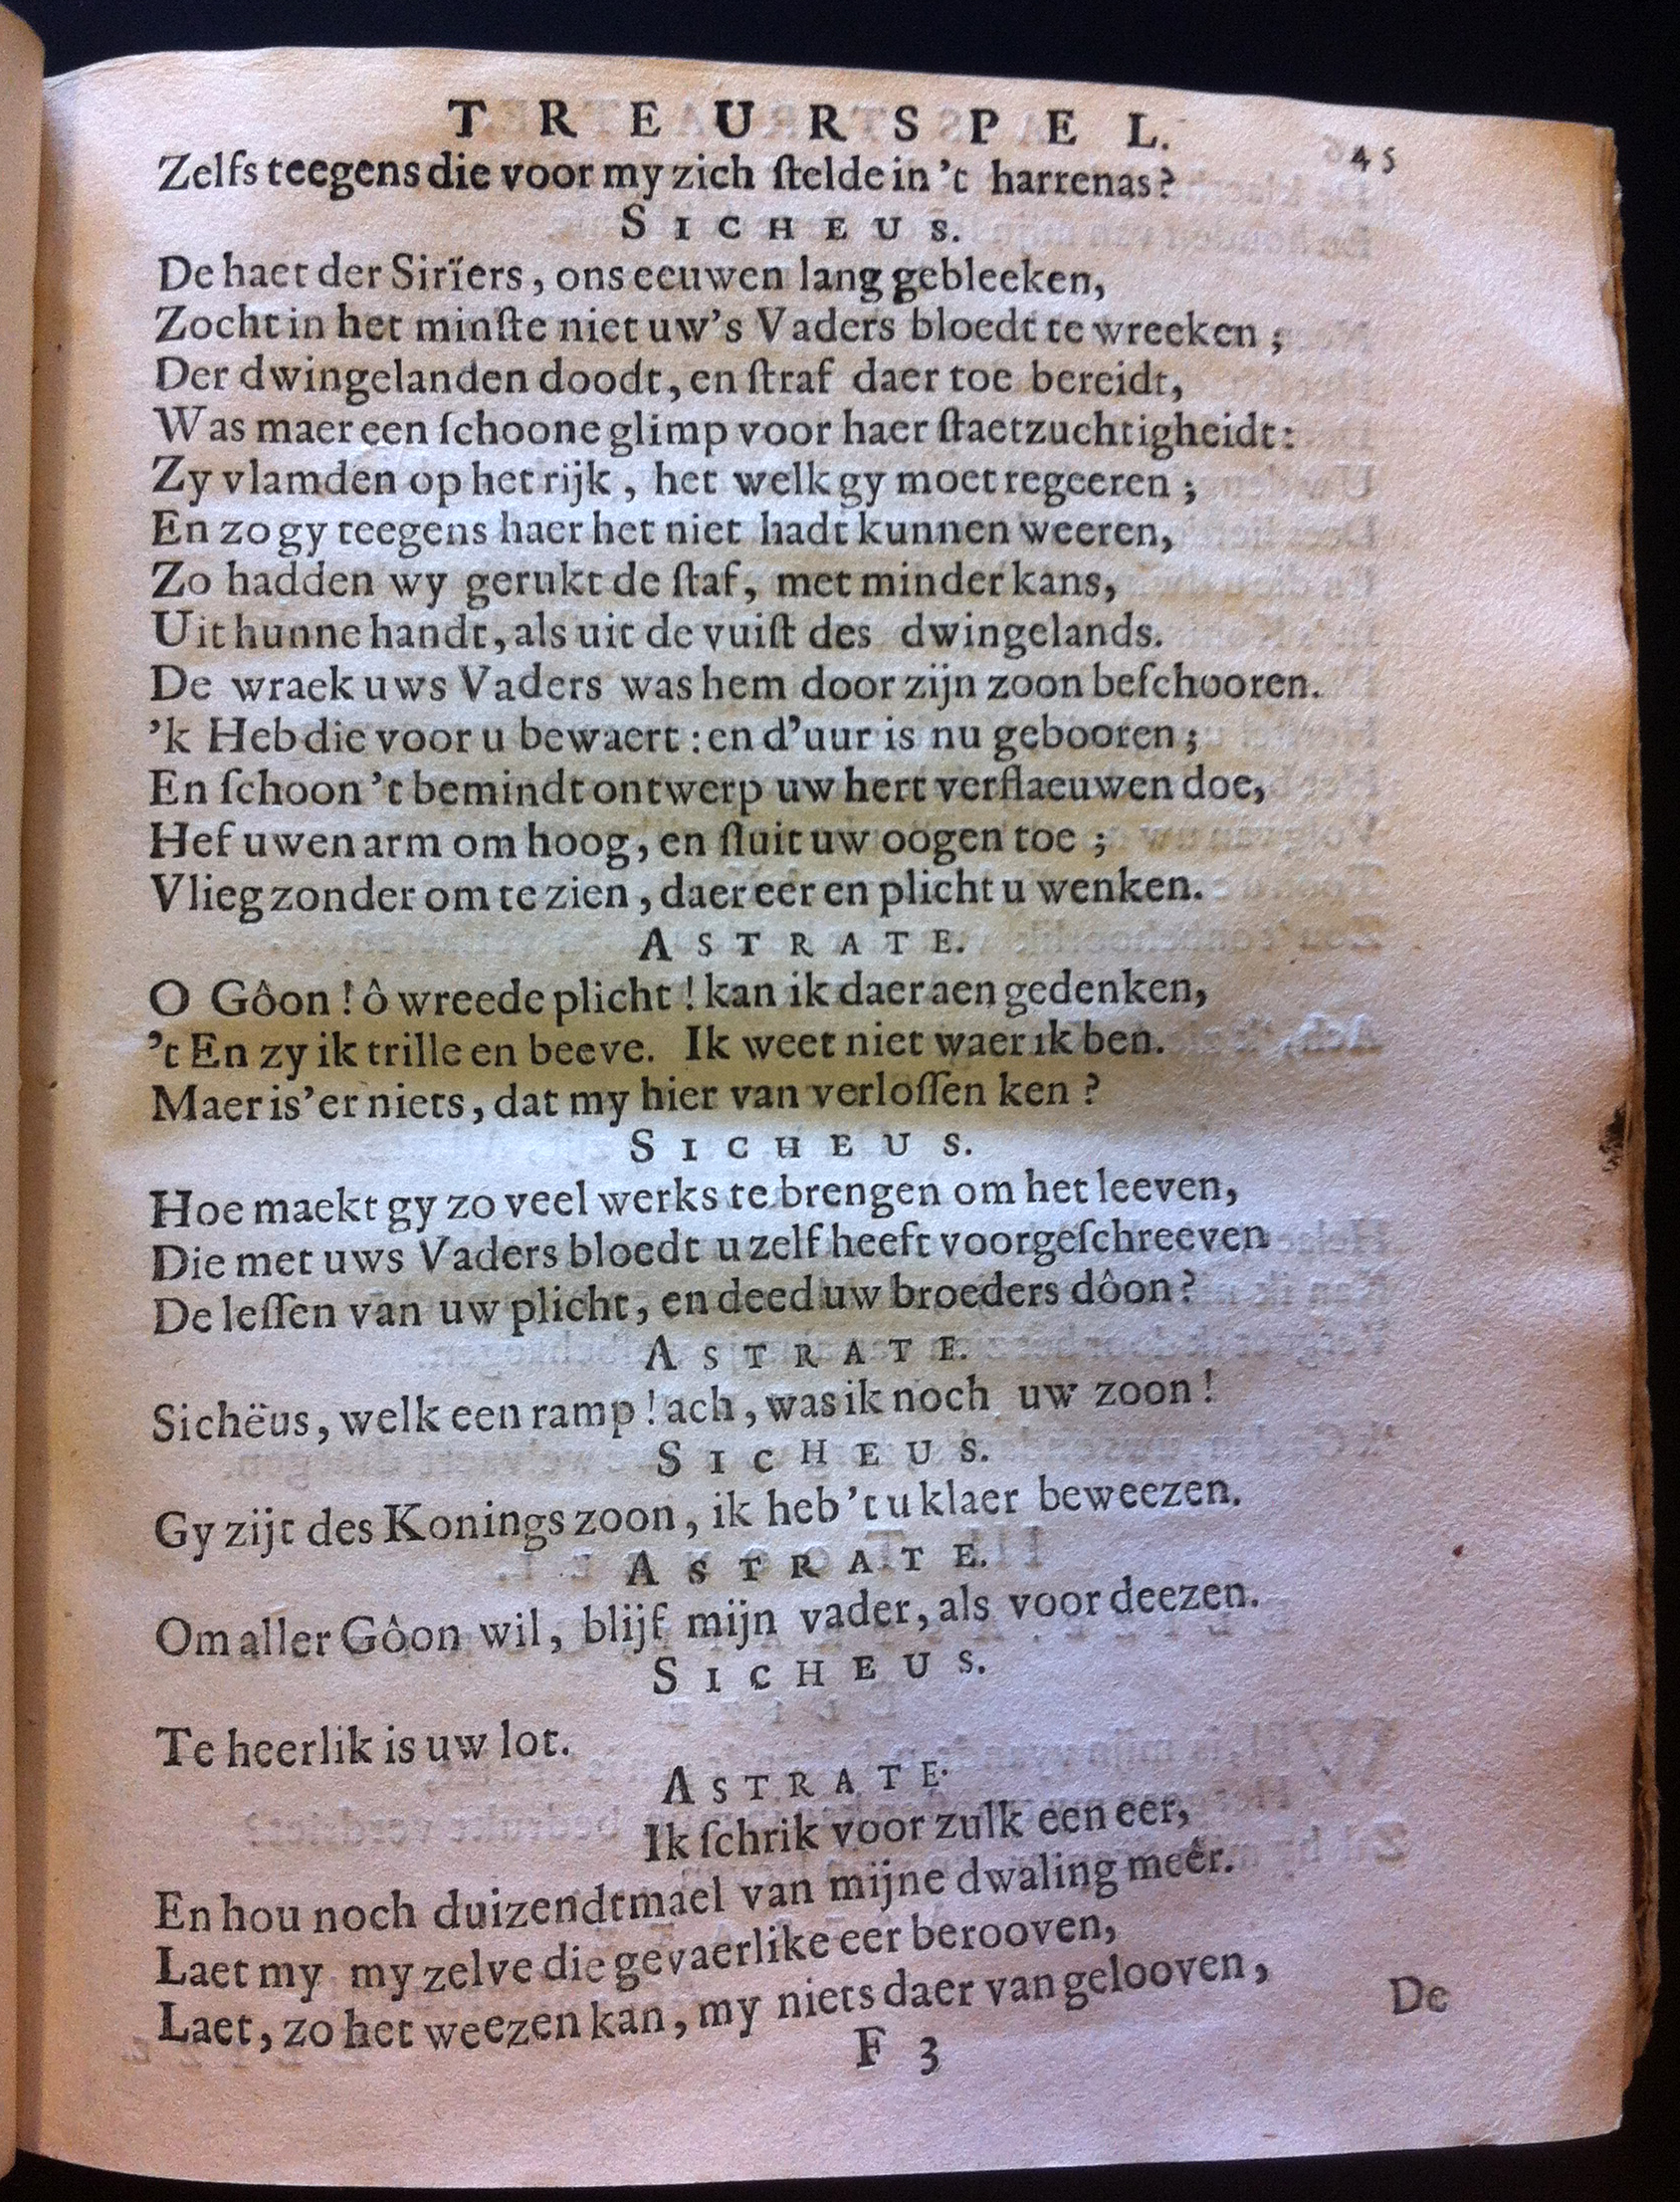 TREURSPEL. 45
Zelfs teegens die voor my zich ſtelde in 't harrenas?
SICHEUS.
De haet der Sirïers, ons eeuwen lang gebleeken,
Zocht in het minſte niet uw's Vaders bloedt te wreeken;
Der dwingelanden doodt, en ſtraf daer toe bereidt,
Was maer een ſchoone glimp voor haer ſtaetzuchtigheidt:
Zy vlamden op het rijk, het welk gy moet regeeren;
En zo gy teegens haer het niet hadt kunnen weeren,
Zo hadden wy gerukt de ſtaf, met minder kans,
Uit hunne handt, als uit de vuiſt des dwingelands.
De wraek uws Vaders was hem door zijn zoon beſchooren.
'k Heb die voor u bewaert: en d'uur is nu gebooren;
En ſchoon 't bemindt ontwerp uw hert verflaeuwen doe,
Hef uwen arm om hoog, en ſluit uw oogen toe;
Vlieg zonder om te zien, daer eer en plicht u wenken.
ASTRATE.
O Gôon! ô wreede plicht! kan ik daer aen gedenken,
't En zy ik trille en beeve. Ik weet niet waer ik ben.
Maer is'er niets, dat my hier van verloſſen ken?
SICHEUS.
Hoe maekt gy zo veel werks te brengen om het leeven,
Die met uws Vaders bloedt u zelf heeft voorgeſchreeven
De leſſen van uw plicht, en deed uw broeders dôon?
ASTRATE.
Sichëus, welk een ramp! ach, was ik noch uw zoon!
SICHEUS.
Gy zijt des Konings zoon, ik heb 't u klaer beweezen.
ASTRATE.
Om aller Gôon wil, blijf mijn vader, als voor deezen.
SICHEUS.
Te heerlik is uw lot.
ASTRATE.
Ik ſchrik voor zulk een eer,
En hou noch duizendtmael van mijne dwaling meêr.
Laet my my zelve die gevaerlike eer berooven,
Laet, zo het weezen kan, my niets daer van gelooven,
F 3 De